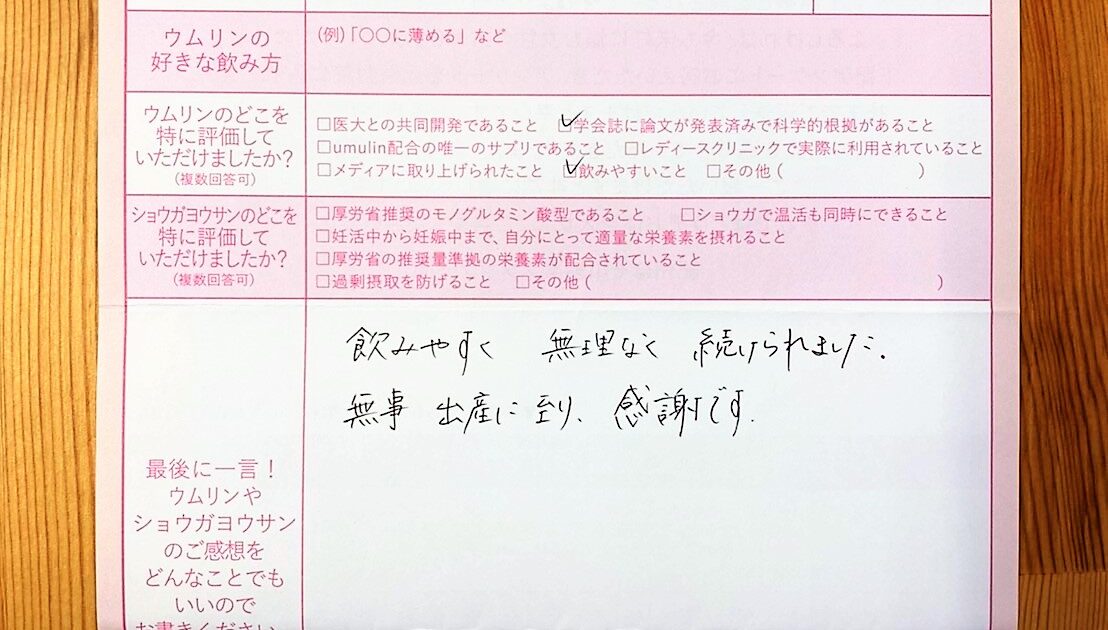 ウムリンの
好きな飲み方
(例)「〇〇に薄める」など
ウムリンのどこを
特に評価して
いただけましたか?
(複数回答可)
□医大との共同開発であること ☑学会誌に論文が発表済みで科学的根拠があること
□umulin配合の唯一のサプリであること □レディースクリニックで実際に利用されていること
□メディアに取り上げられたこと ☑飲みやすいこと □その他( )
ショウガヨウサンのどこを
特に評価して
いただけましたか?
(複数回答可)
□厚労省推奨のモノグルタミン酸型であること □ショウガで温活も同時にできること
□妊活中から妊娠中まで、自分にとって適量な栄養素を摂れること
□厚労省の推奨量準拠の栄養素が配合されていること
□過剰摂取を防げること □その他( )
最後に一言!
ウムリンや
ショウガヨウサン
のご感想を
どんなことでも
いいので
お書きください。
飲みやすく 無理なく 続けられました.
無事 出産に到り、感謝です.